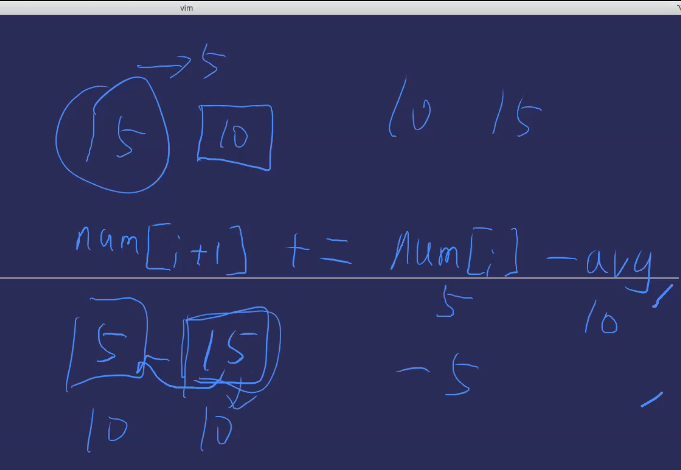 vim
→ 5
15 10 10 15
num[i+1] += num[i] - avg
5 10
5 15 -5
10 10